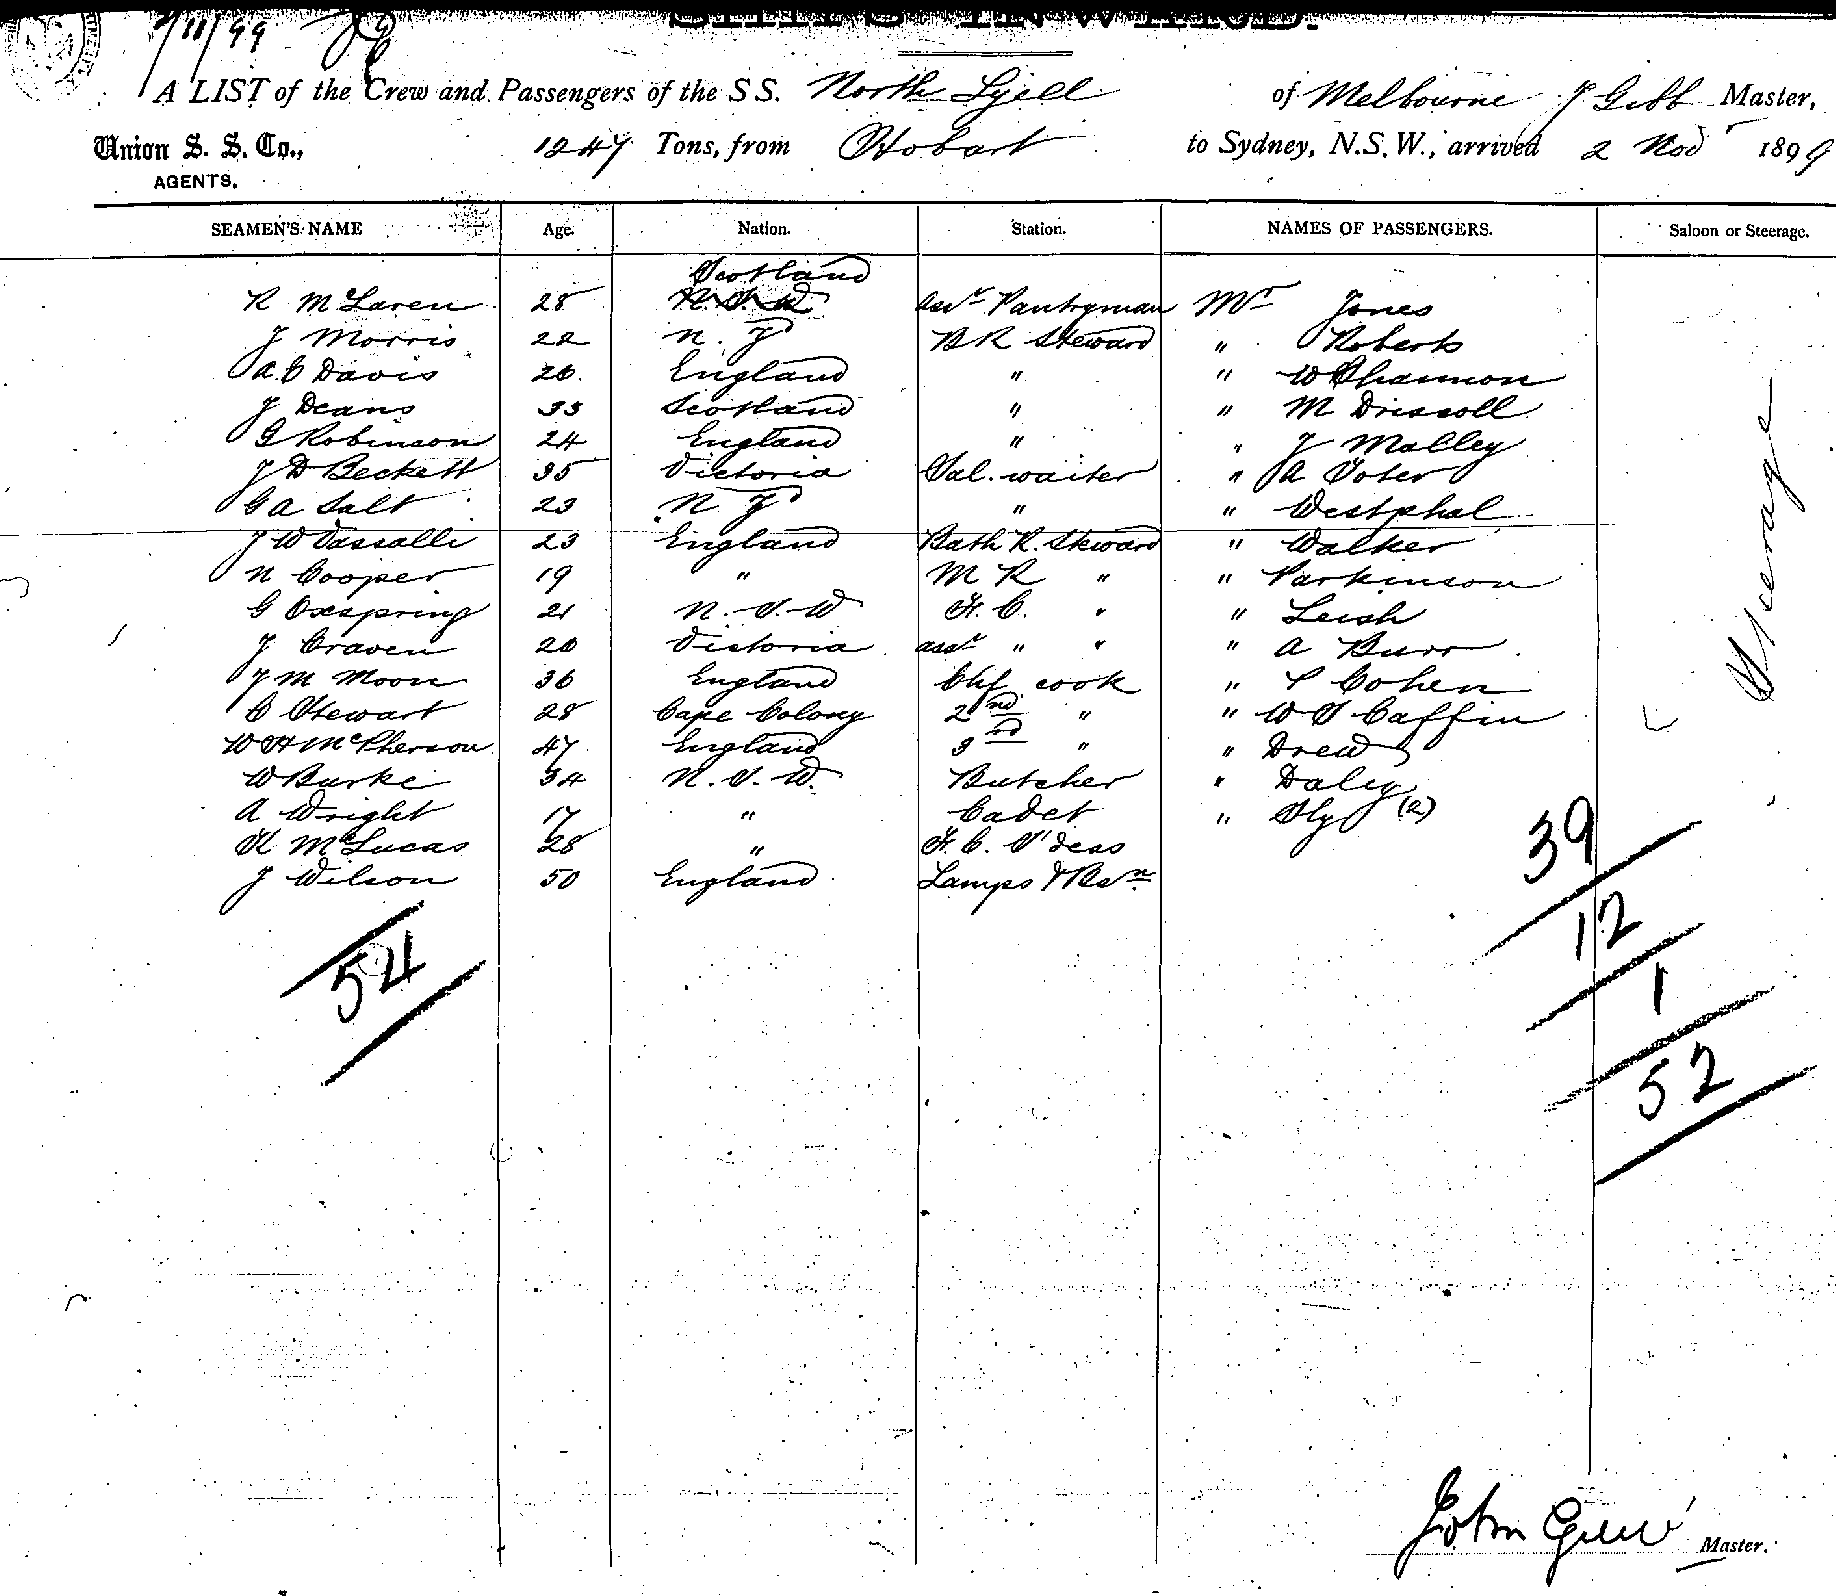 SHIPS INWARD.
2/11/99
A LIST of the Crew and Passengers of the SS. North Lyell of Melbourne J Gibb Master,
Union S. S. Co., 1247 Tons, from Hobart to Sydney, N.S.W., arrived 2 Nov 1899
AGENTS.
SEAMEN'S NAME Age. Nation. Station. NAMES OF PASSENGERS. Saloon or Steerage.
Scotland
R McLaren 28 N.S.W Pantryman Mr Jones
J Morris 22 N. Z BR Steward " Roberts
A. C Davis 26. England " " W Shannon
J Deans 35 Scotland " " M Driscoll
G Robinson 24 England " " J Malley
J D Beckett 35 Victoria Sal. waiter " A Voter
G A Salt 23 N. Z " " Westphal
J W Vassalli 23 England Bath R. Steward " Walker
N Cooper 19 " M R " " Parkinson
G Oxspring 21 N. S. W F. C. " " Leish
J Craven 20 Victoria asst " " " A Burr
J M Moon 36 England Chf cook " L Cohen
C Stewart 28 Cape Colony 2nd " " W S Caffin
W H McPherson 47 England 3rd " " Drew
W Burke 34 N. S. W. Butcher " Daley
A Wright 17 " Cadet " Sly (2)
K McLucas 28 " F. C. S'dess
J Wilson 50 England Lamps &
Steerage
39
12
1
52
54
John Master.